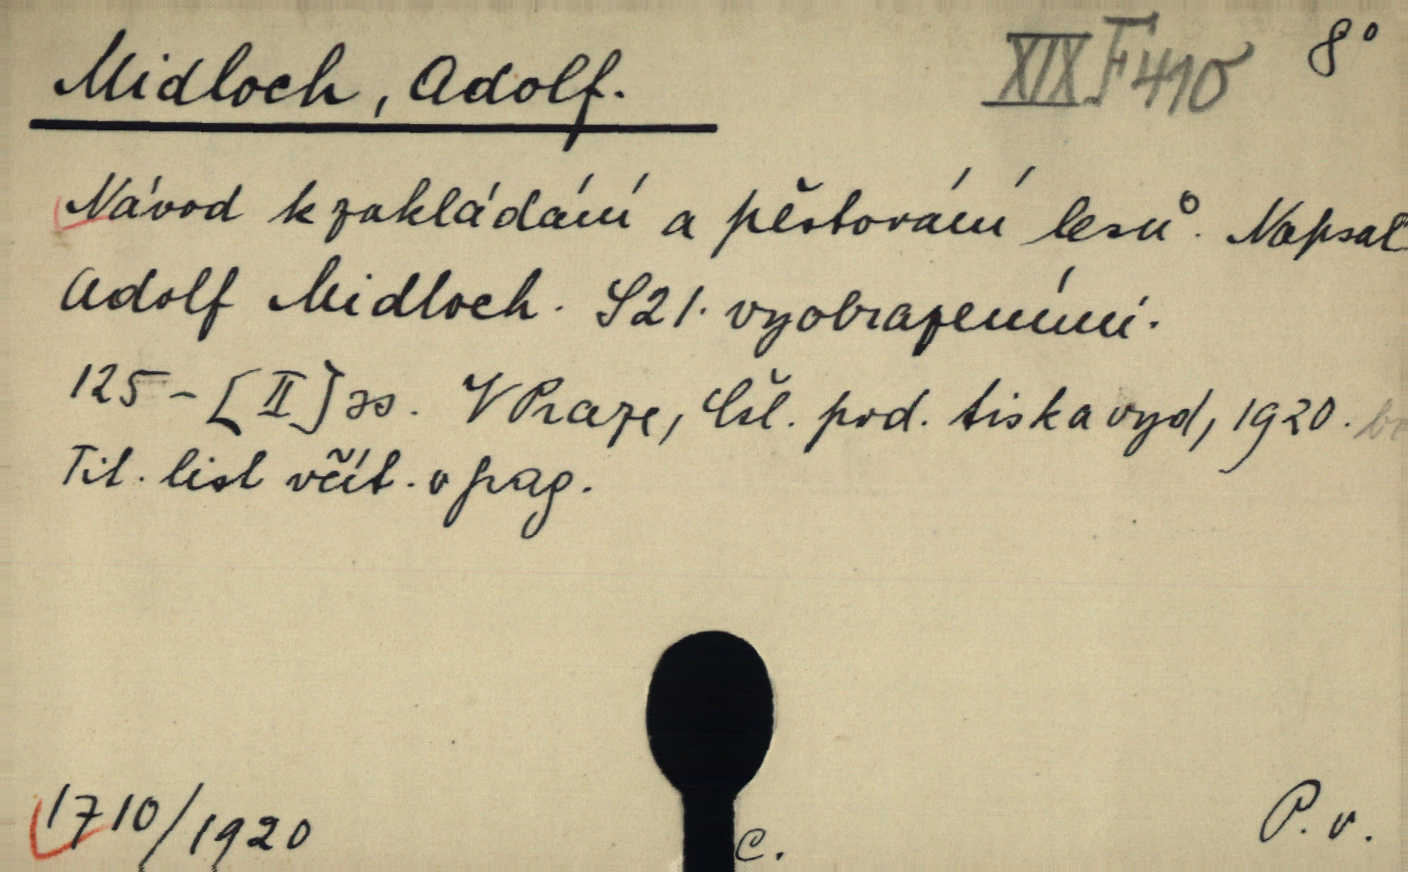 Midloch, Adolf.
XIX F 410
8°
Návod k zakládání a pěstování lesů. Napsal
Adolf Midloch. S 21. vyobrazeními.
125-[II] ss. V Praze, Čsl. pod. tisk a vyd, 1920.
Tit. list včít. v pag.
1710/1920
C.
P. v.